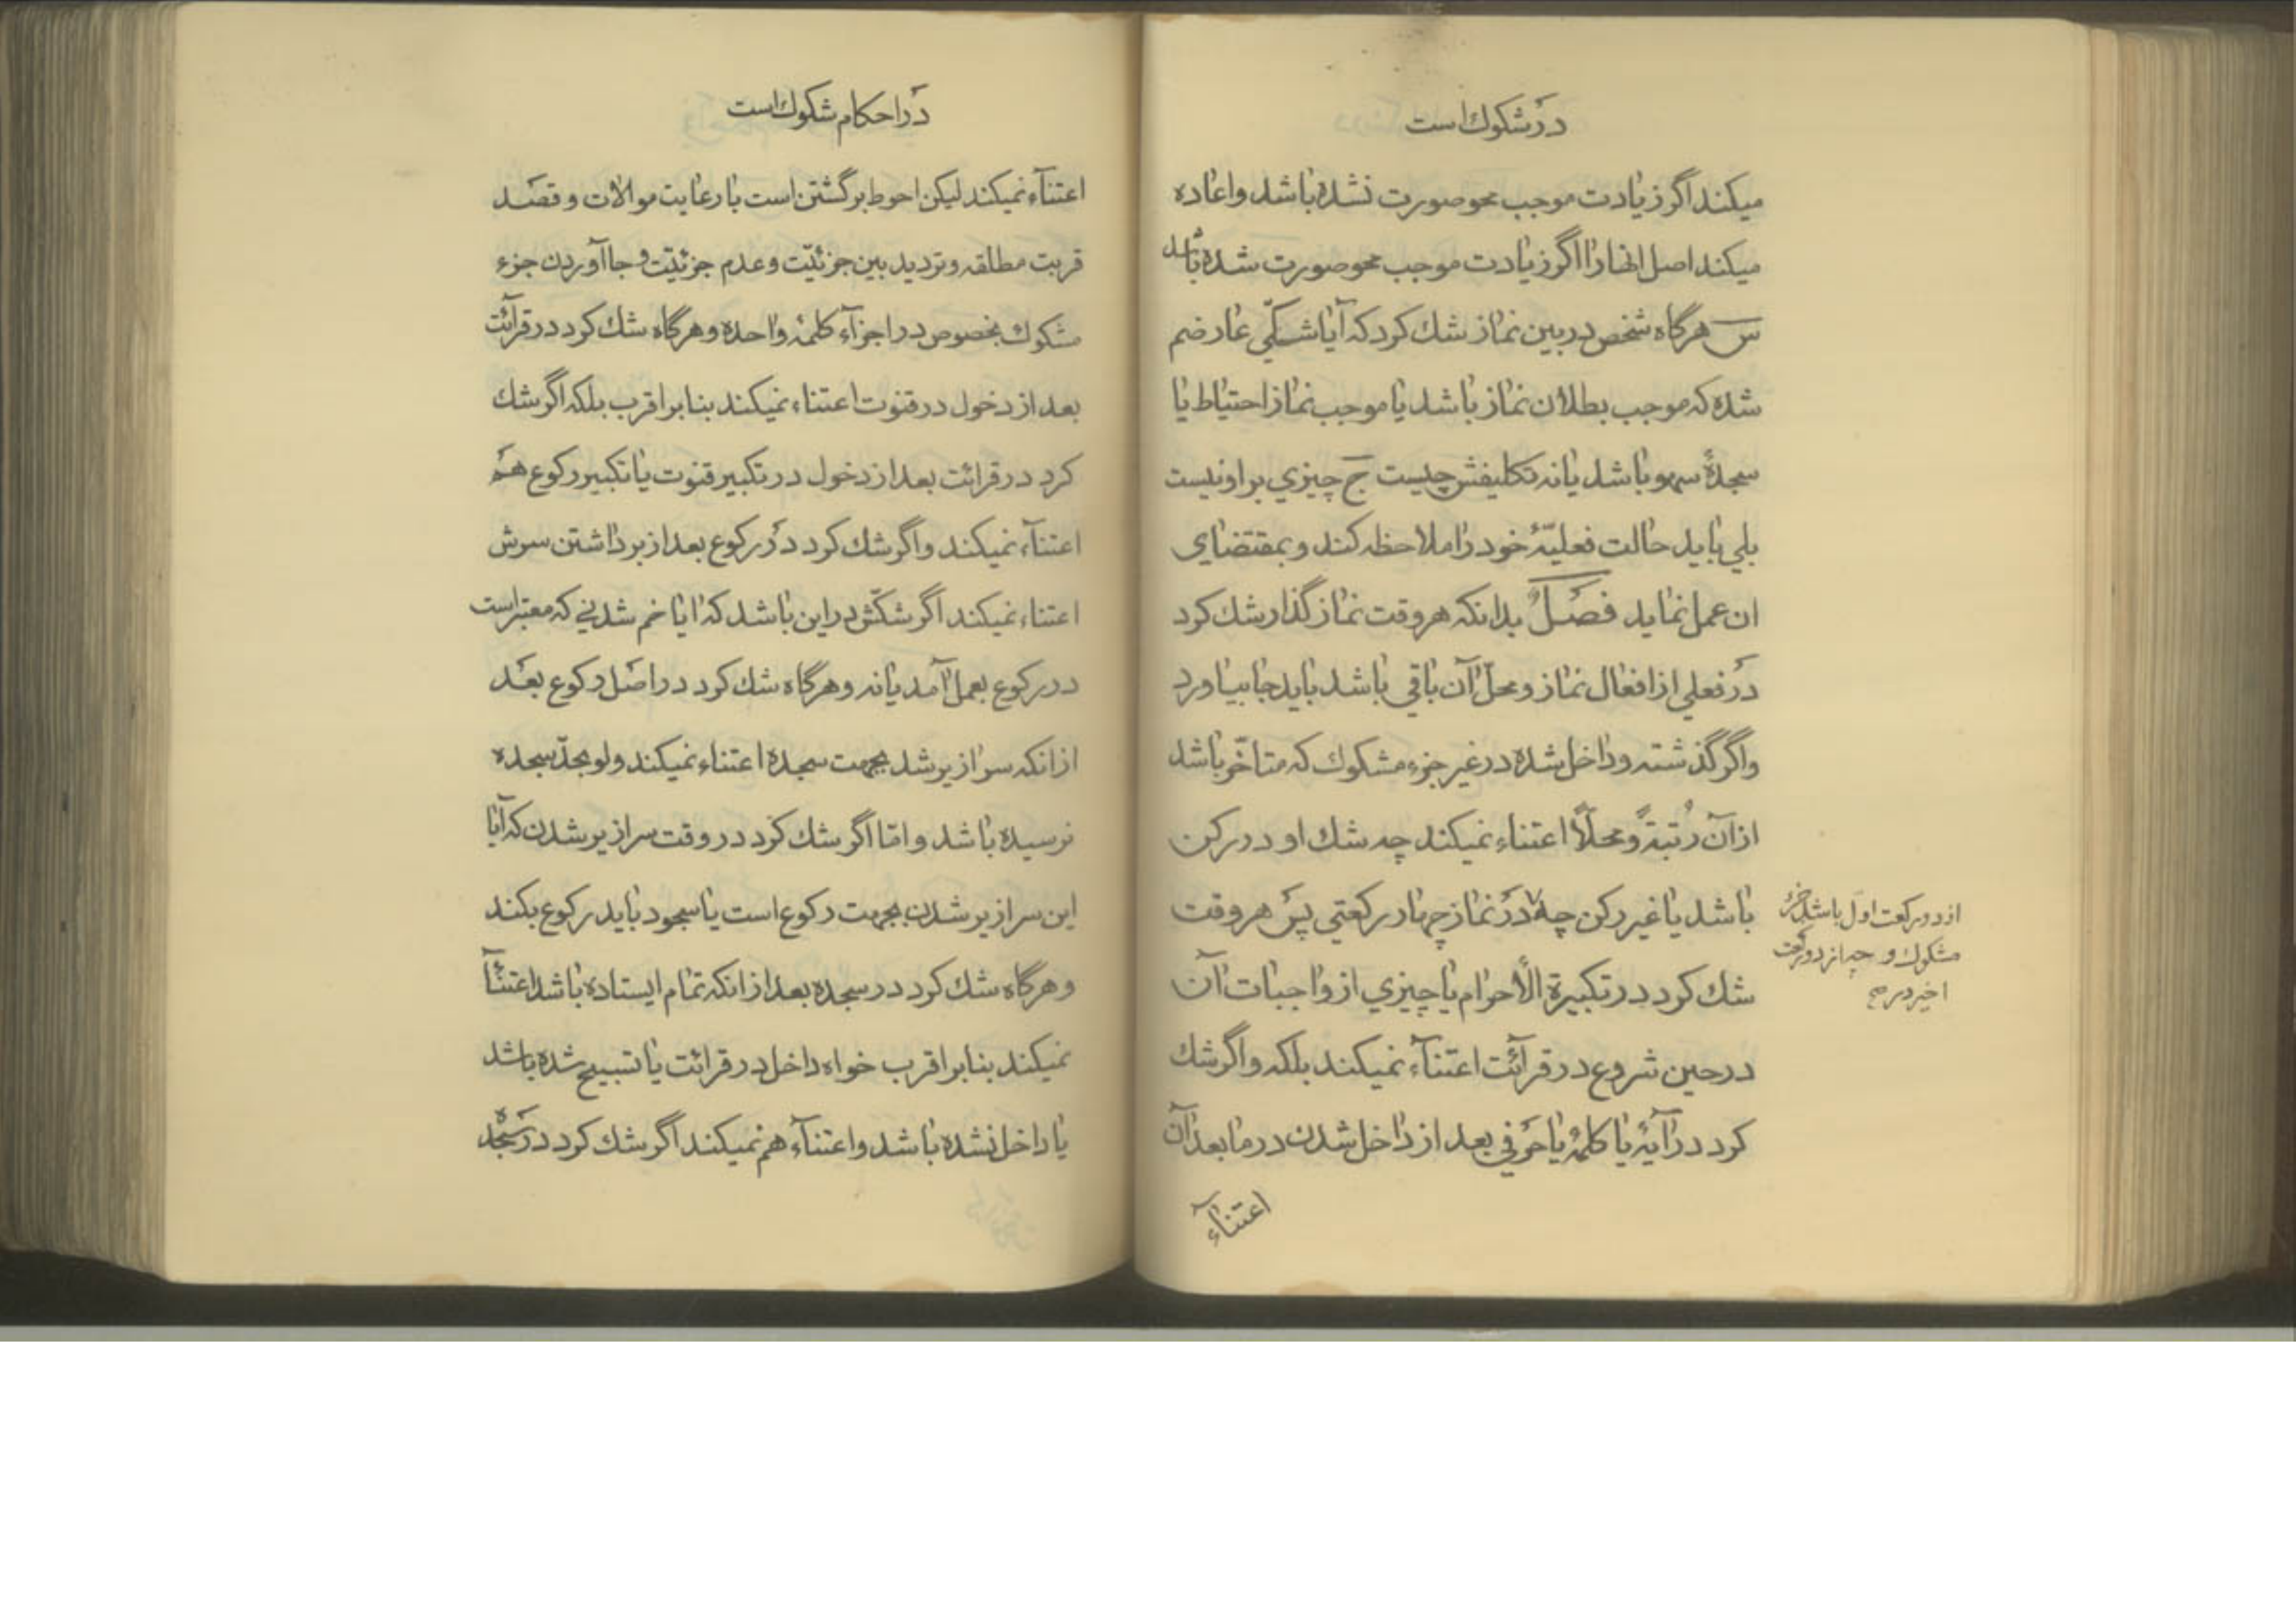 در شکوك است
میکند اگر زیادت موجب محو صورت نشده باشد واعاده
میکند اصل انها را اگر زیادت موجب محو صورت شده باشد
س هرگاه شخص در بین نماز شك کرد که آیا شکّی عارضم
شده که موجب بطلان نماز باشد یا موجب نماز احتیاط یا
سجدهٔ سهو باشد یا نه تکلیفش چیست ج چیزي بر او نیست
بلي باید حالت فعلیّهٔ خود را ملاحظه کند و بمقتضای
ان عمل نماید فصلٌ بدانکه هر وقت نماز گذار شك کرد
در فعلي از افعال نماز و محلّ آن باقي باشد باید بجا بیاورد
واگر گذشته وداخل شده در غیر جزء مشکوك که متاخّر باشد
از آن رُتبةً ومحلّاً اعتناء نمیکند چه شك او در رکن
باشد یا غیر رکن چه ٧ در نماز چهار رکعتي پس هر وقت
از دو رکعت اول باشد جزء
مشکوك و چه از دو رکعت
اخیر در صح
شك کرد در تکبیرة الأحرام یا چیزي از واجبات آن
در حین شروع در قرآئت اعتنآء نمیکند بلکه واگر شك
کرد در آیهٔ یا کلمهٔ یا حرفي بعد از داخل شدن در ما بعد آن
اعتنآء
در احکام شکوك است
اعتنآء نمیکند لیکن احوط برگشتن است با رعایت موالات و قصد
قربت مطلقه و تردید بین جزئیّت وعدم جزئیّت و بجا آوردن جزء
مشکوك بخصوص در اجزآء کلمهٔ واحده وهرگاه شك کرد در قرآئت
بعد از دخول در قنوت اعتناء نمیکند بنا بر اقرب بلکه اگر شك
کرد در قرائت بعد از دخول در تکبیر قنوت یا تکبیر رکوع هم
اعتنآء نمیکند واگر شك کرد در رکوع بعد از برداشتن سرش
اعتناء نمیکند اگر شکّش در این باشد که ایا خم شدني که معتبر است
در رکوع بعمل آمد یا نه وهرگاه شك کرد در اصل رکوع بعد
از انکه سرازیر شد بجهت سجده اعتناء نمیکند ولو بحدّ سجده
نرسیده باشد و امّا اگر شك کرد در وقت سرازیر شدن که آیا
این سرازیر شدن بجهت رکوع است یا سجود باید رکوع بکند
وهرگاه شك کرد در سجده بعد از انکه تمام ایستاده باشد اعتنآء
نمیکند بنا بر اقرب خواه داخل در قرائت یا تسبیح شده باشد
یا داخل نشده باشد واعتنآء هم نمیکند اگر شك کرد در سجده